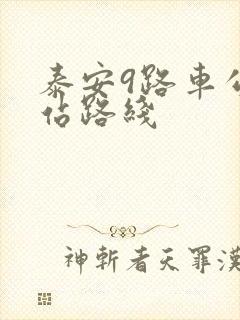 泰安9路車公
佔路綫
神斬者天罪漢